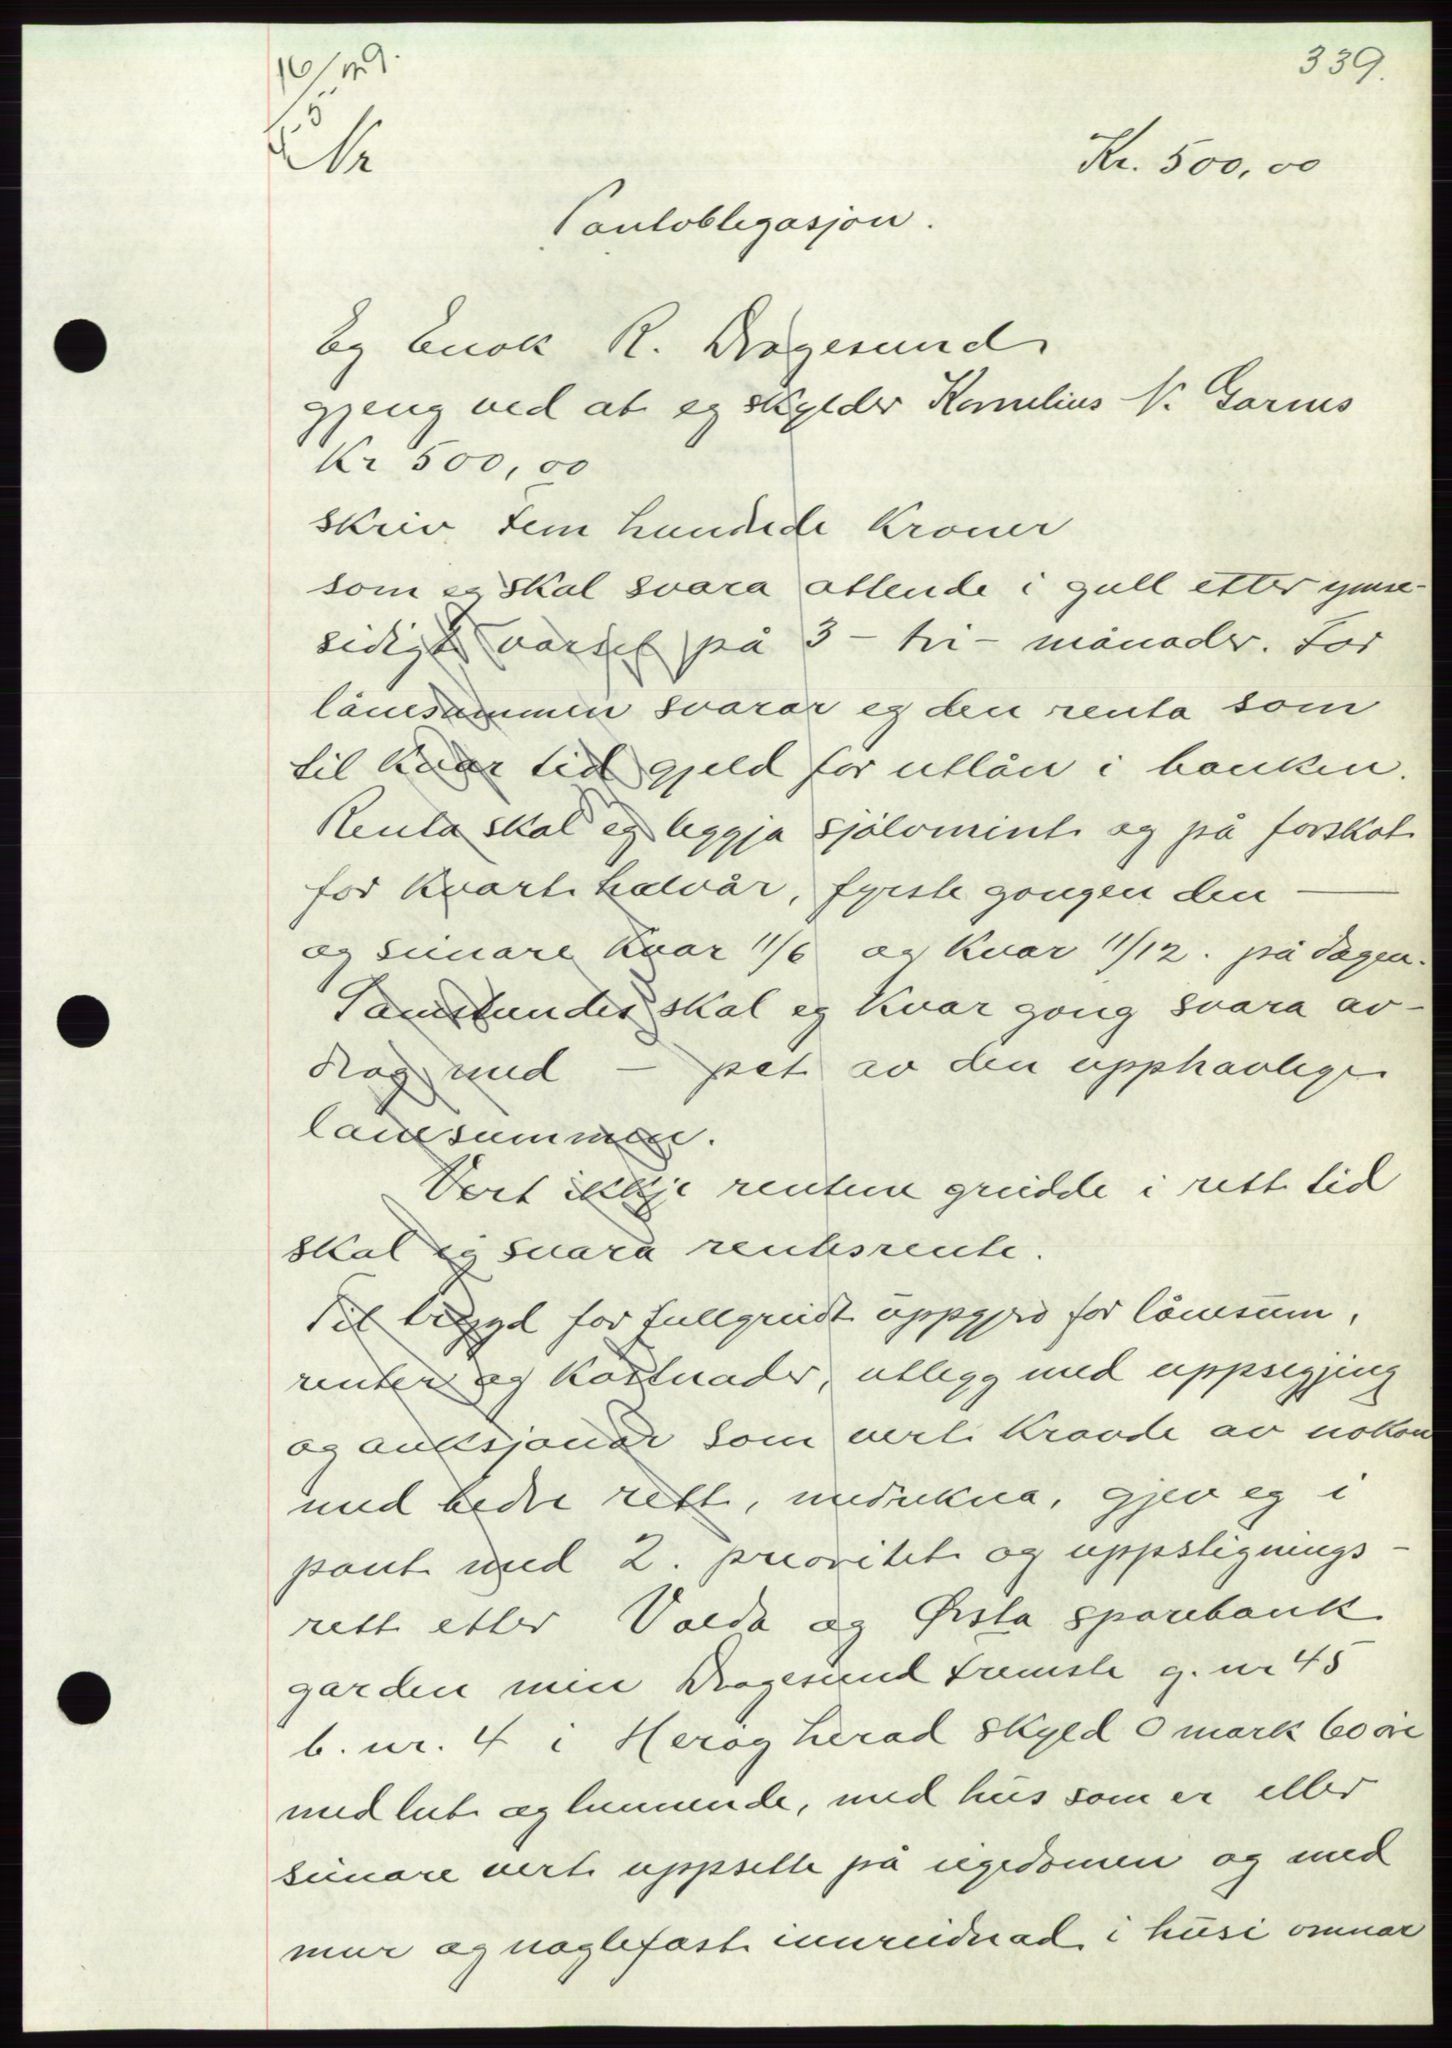 339.
16/5 29.
Nr
Kr. 500,00
Pantobligasjon.
Eg Enok R. Dragesund
gjeng ved at eg skylder Kornelius N. Garnes
Kr 500,00
skriv Fem hundrede Kroner
som eg skal svara attende i gull etter ymse-
sidigt varsel på 3 - tri - månader. For
lånesummen svarar eg den renta som
til kvar tid gjeld for utlån i banken.
Renta skal eg leggja sjølvmint og på forskot
for kvart halvår, fyrste gongen den —
og seinare kvar 11/6 og kvar 11/12. på dagen.
Samstundes skal eg kvar gong svara av-
drag med — pct av den upphavlege
lånesummen.
Vert ikkje rentene greidde i rett tid
skal eg svara rentesrente.
Til trygd for fullgreidt uppgjerd for lånesum,
renter og kostnader, utlegg med uppsegjing
og auksjonar som vert kravde av nokon
med bedre rett, medrekna, gjev eg i
pant med 2. prioritet og uppstignings-
rett etter Volda og Ørsta sparebank
garden min Dragesund fremste g. nr 45
b. nr. 4 i Herøy herad skyld 0 mark 60 øre
med lut og lunnende, med hus som er eller
seinare vert uppsette på eigedomen og med
mur og naglefast innreidnad i husi omnar